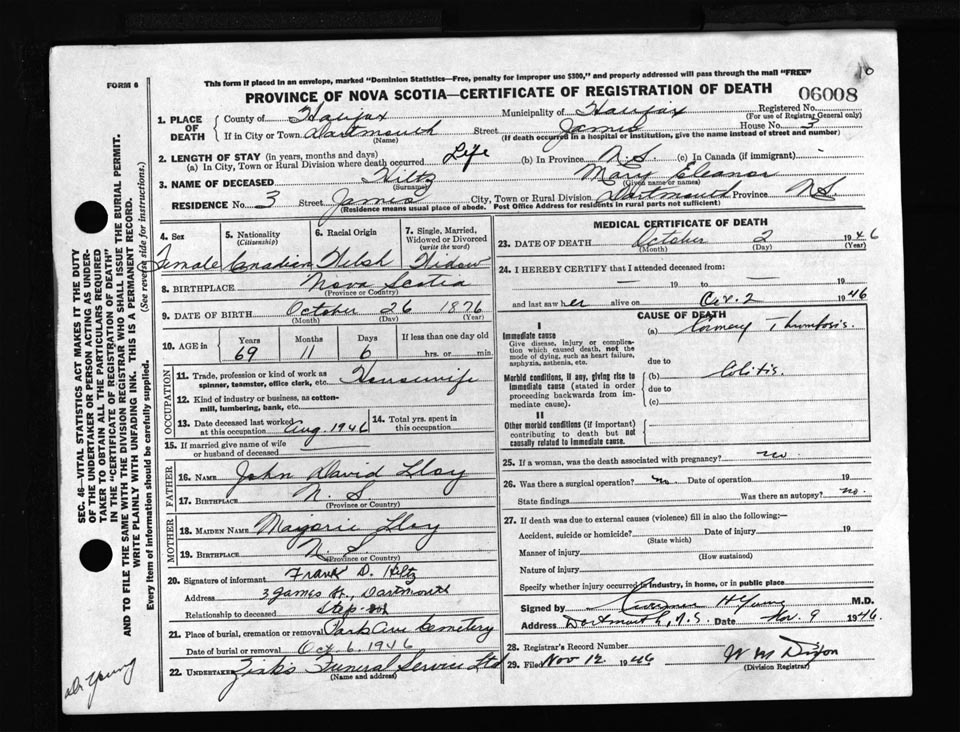 FORM 6
This form if placed in an envelope, marked "Dominion Statistics—Free, penalty for improper use $300," and properly addressed will pass through the mail "FREE"
PROVINCE OF NOVA SCOTIA—CERTIFICATE OF REGISTRATION OF DEATH
06008
10
1. PLACE OF DEATH
County of Halifax Municipality of Halifax Registered No.
(For use of Registrar General only)
If in City or Town Dartmouth Street James House No. 3
(Name) (If death occurred in a hospital or institution, give the name instead of street and number)
2. LENGTH OF STAY (in years, months and days)
(a) In City, Town or Rural Division where death occurred Life (b) In Province N.S. (c) In Canada (if immigrant) -
3. NAME OF DECEASED Hiltz Mary Eleanor
(Surname) (Given name or names)
RESIDENCE No. 3 Street James City, Town or Rural Division Dartmouth Province N.S.
(Residence means usual place of abode. Post Office Address for residents in rural parts not sufficient)
4. Sex
Female
5. Nationality
(Citizenship)
Canadian
6. Racial Origin
Welsh
7. Single, Married, Widowed or Divorced
(write the word)
Widow
8. BIRTHPLACE Nova Scotia
(Province or Country)
9. DATE OF BIRTH October 26 1876
(Month) (Day) (Year)
10. AGE in Years Months Days If less than one day old
69 11 6 hrs. or min.
OCCUPATION
11. Trade, profession or kind of work as spinner, teamster, office clerk, etc. Housewife
12. Kind of industry or business, as cotton-mill, lumbering, bank, etc.
13. Date deceased last worked at this occupation Aug. 1946
14. Total yrs. spent in this occupation
15. If married give name of wife or husband of deceased
FATHER
16. NAME John David Lloy
17. BIRTHPLACE N.S.
(Province or Country)
MOTHER
18. MAIDEN NAME Marjorie Lloy
19. BIRTHPLACE N.S.
(Province or Country)
20. Signature of informant Frank D. Hiltz
Address 3 James St., Dartmouth
Relationship to deceased Step-son
21. Place of burial, cremation or removal Park Ave Cemetery
Date of burial or removal Oct. 6. 1946
22. UNDERTAKER Zink's Funeral Service Ltd
(Name and address)
MEDICAL CERTIFICATE OF DEATH
23. DATE OF DEATH October 2 1946
(Month) (Day) (Year)
24. I HEREBY CERTIFY that I attended deceased from:
— 19 to — 19
and last saw her alive on Oct. 2 1946
CAUSE OF DEATH
I
Immediate cause
Give disease, injury or complication which caused death, not the mode of dying, such as heart failure, asphyxia, asthenia, etc.
(a) Coronary Thrombosis.
due to
Morbid conditions, if any, giving rise to immediate cause (stated in order proceeding backwards from immediate cause).
(b) Colitis.
due to
(c)
II
Other morbid conditions (if important) contributing to death but not causally related to immediate cause.
25. If a woman, was the death associated with pregnancy? no.
26. Was there a surgical operation? no. Date of operation 19
State findings Was there an autopsy? no.
27. If death was due to external causes (violence) fill in also the following:—
Accident, suicide or homicide? Date of injury 19
(State which)
Manner of injury
(How sustained)
Nature of injury
Specify whether injury occurred in industry, in home, or in public place
Signed by H Young M.D.
Address Dartmouth, N.S. Date Nov. 9 1946
28. Registrar's Record Number
29. Filed Nov 12 1946 W M Dixon
(Division Registrar)
SEC. 46—VITAL STATISTICS ACT MAKES IT THE DUTY
OF THE UNDERTAKER OR PERSON ACTING AS UNDER-
TAKER TO OBTAIN ALL THE PARTICULARS REQUIRED
IN THE "CERTIFICATE OF REGISTRATION OF DEATH"
AND TO FILE THE SAME WITH THE DIVISION REGISTRAR WHO SHALL ISSUE THE BURIAL PERMIT.
WRITE PLAINLY WITH UNFADING INK. THIS IS A PERMANENT RECORD.
Every item of information should be carefully supplied. (See reverse side for instructions.)
Dr Young